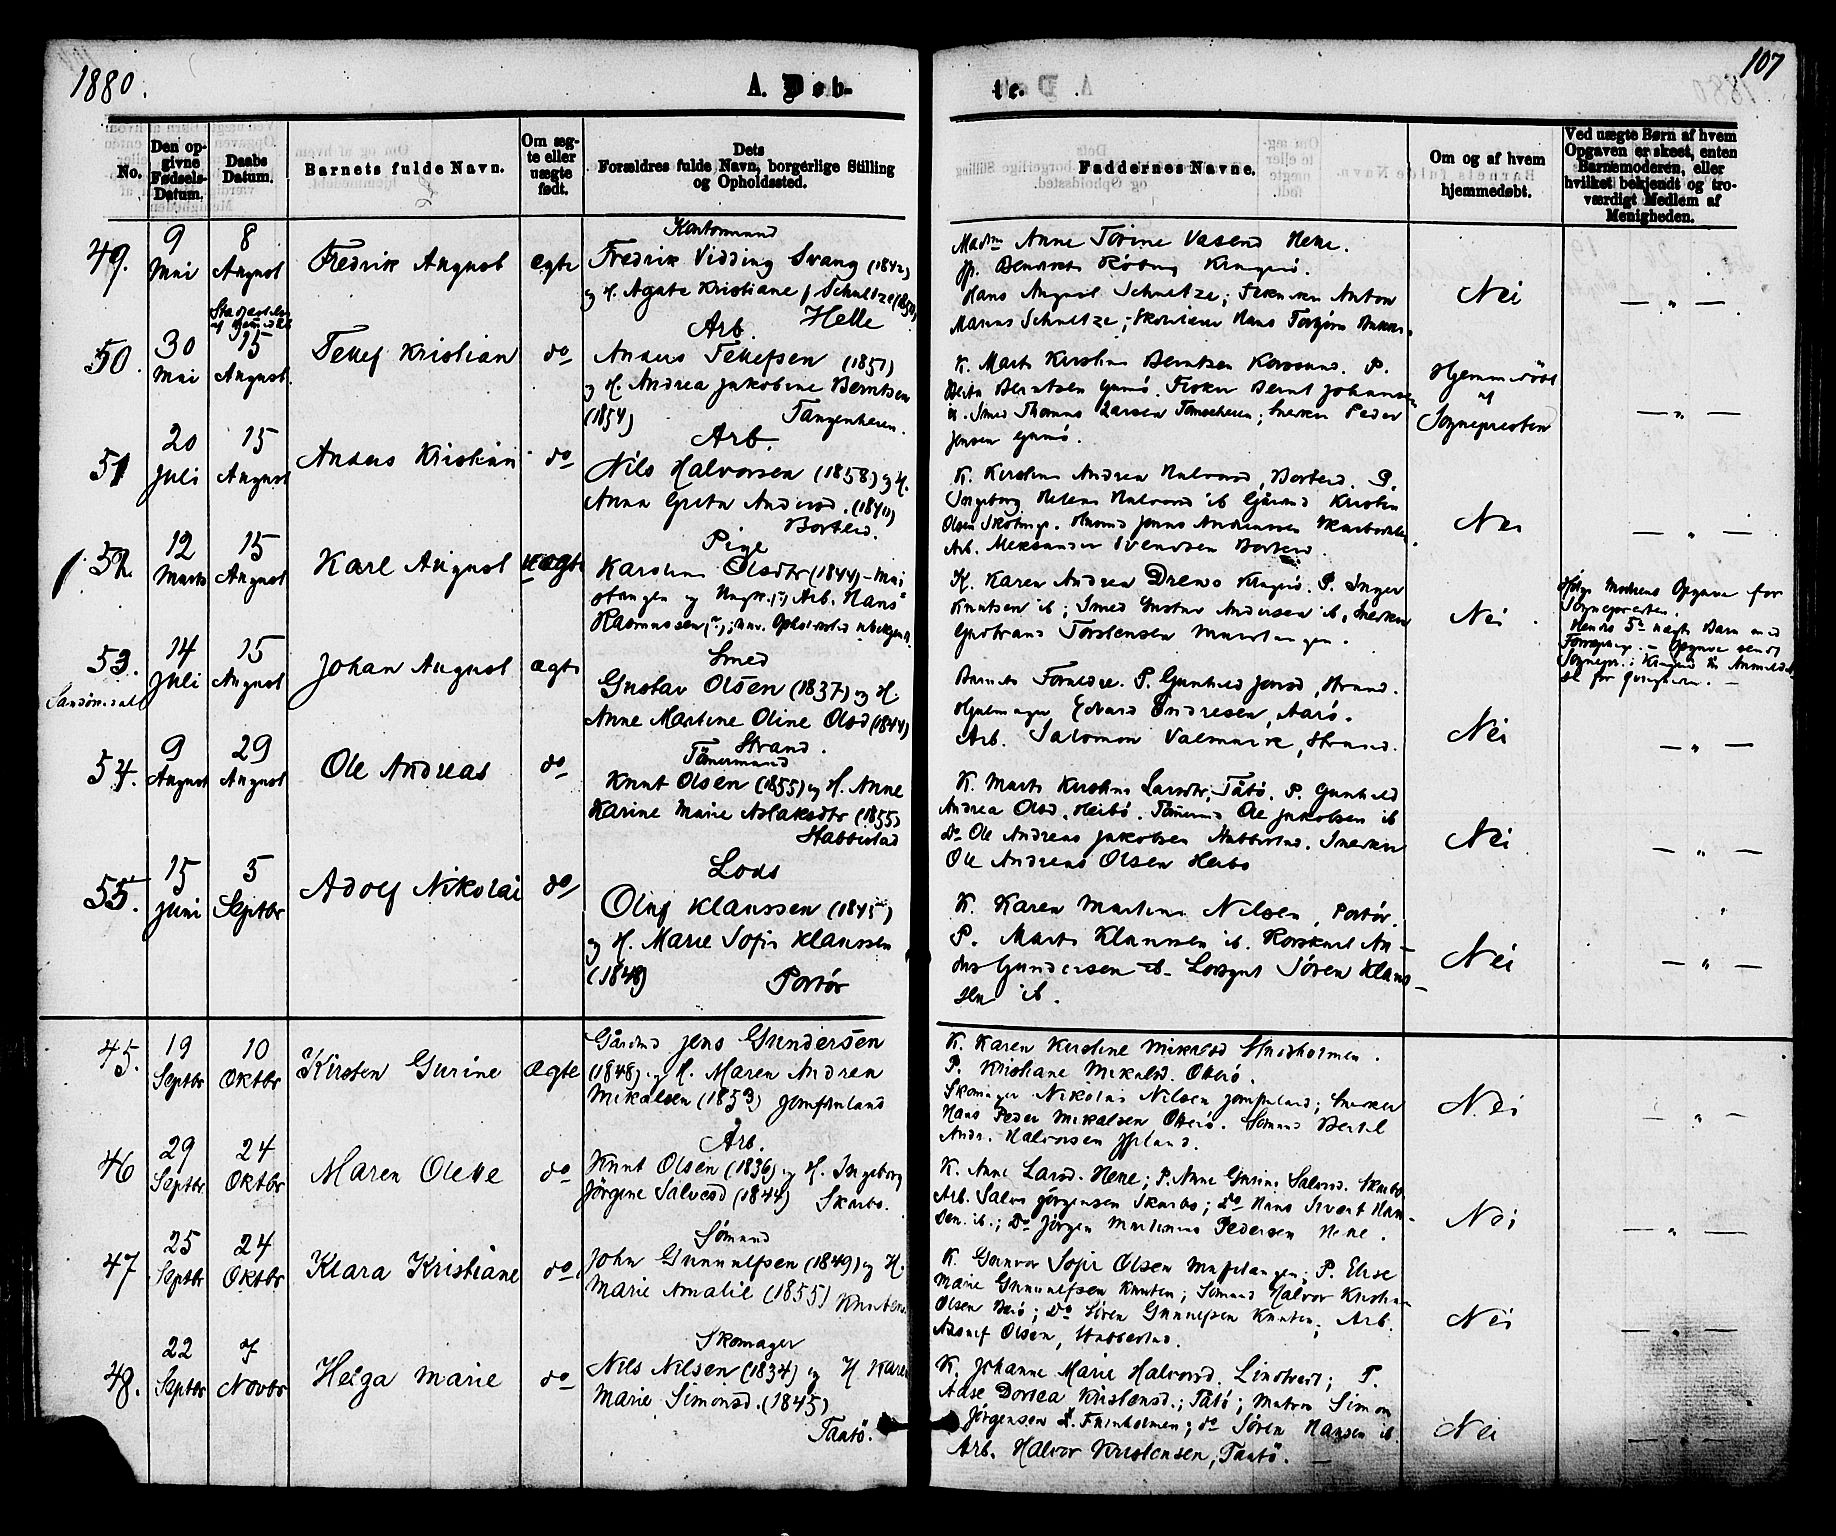 1880.
A. Døb-
te.
107
No.
Den op-
givne
Fødsels-
Datum.
Daabs
Datum.
Barnets fulde Navn.
Om æg-
te eller
uægte
født.
Dets
Forældres fulde Navn, borgerlige Stilling
og Opholdssted.
Faddernes Navne.
Om og af hvem
hjemmedøbt.
Ved uægte Børn af hvem
Opgaven er skeet, enten
Barnemoderen, eller
hvilket bekjendt og tro-
værdigt Medlem af
Menigheden.
49. 9 Mai 8 August Fredrik August ægte
Kontormand
Fredrik Vidding Svang (1842)
og H. Agate Kristiane f Schultze (1850)
Helle
Madm Anne Torine Vasend Helle.
Hans August Schultze; Anton
Marius Schultze; Hans
Nei
— " —
50. 30 Mai 15 August. Tellef Kristian do
Arb.
Anders Tellefsen (1851)
og H. Andrea Jakobine Berntsen
(1854) Tangenheien.
K. Marte Kirstine Berntsen Korssund. P.
Berte Berntsen Gumø. Fisker Bernt Johannsen
ib. Smed Thomas Larsen Snekker Peder
Jensen Gumø.
Hjemmedøbt
af
Sognepresten
— " —
51 20 Juli 15 August Anders Kristian do
Arb.
Nils Halvorsen (1858) og H.
Anna Greta Andersd. (1840)
Borteid.
K. Kirstine Andrea Halvorsd, Borteid. P.
Ingeborg Helene Halvorsd ib Gårmd Kristen
Olsen
Arb. Aleksander Svendsen Borteid.
Nei
— " —
52. 12 Marts 15 August Karl August uægte
Pige
Karoline Olsdtr (1844) - Mai
stangen og Ungk. (?) Arb. Hans
Rasmussen (?); nuv. Opholdssted ubekjendt
K. Karen Andrea Drews Kragerø. P. Inger
Knutsen ib; Smed Gustav Andersen ib, Snekker
Gudbrand Torstensen
Nei
Ifølge Moderens Opgave for
Sognepresten.
Hendes 5te uægte Barn med
53. 14 Juli 15 August Johan August ægte
Sandømdalt
Smed
Gustav Olsen (1837) og H.
Anne Martine Oline Olsd (1844)
Strand.
Barnets Forældre. P. Gunhild Jensd, Strand.
Edvard Endresen, Aarø.
Arb. Salomon Valmuik, Strand.
Nei
— " —
54. 9 August 29 August Ole Andreas do
Tømermand
Knut Olsen (1855) og H. Anne
Karine Marie Aslaksdtr (1855)
Stabbestad
K. Marte Kirstine Larsdtr, Tåtø. P. Gunhild
Andrea Olsd. Heibø. Tømermd Ole Jakobsen ib
Do Ole Andreas Jakobsen Stabbestad. Snekker
Ole Andreas Olsen Heibø
Nei
— " —
55. 15 Juni 5 Septbr Adolf Nikolai do
Lods
Oluf Klaussen (1845)
og H. Marie Sofie Klaussen
(1848) Portør
K. Karen Martine Nilsen, Portør.
P. Marte Klaussen ib. An-
ders Gundersen ib. Søren Klaus-
sen ib.
Nei
— " —
45. 19 Septbr 10 Oktbr Kirsten Gurine ægte
Gårdmd Jens Gundersen
(1848) og H. Maren Andrea
Mikalsen (1853) Jomfruland
K. Karen Kirstine Mikalsd Stridholmen.
P. Kristiane Mikalsd. Oterø.
Skomager Nikolai Nilsen Jomfruland; Snekker
Hans Peder Mikalsen Oterø. Sømand Bertel
Andr. Halvorsen Jfrland.
Nei
— " —
46 29 Septbr. 24 Oktbr Maren Olette do
Arb.
Knut Olsen (1836) og H. Ingeborg
Jørgine Salvesd (1844) Skarbo.
K. Anne Larsd. Helle; P. Anne Gurine Salvesd. Skarbo
Arb. Salve Jørgensen Skarbo; Do Hans Sivert Han-
sen. ib.; Do Jørgen Martinius Pedersen Helle.
Nei
— " —
47 25 Septbr 24 Oktbr Klara Kristiane do.
Sømand
John Gunnulfsen (1849) og H.
Marie Amalie (1855) Knuten
K. Gunvor Sofie Olsen P. Elise
Marie Gunnulfsen Knuten; Sømand Halvor Kristian
Olsen Berø; Do Søren Gunnulfsen Knuten; Arb.
Olsen, Stabbestad.
Nei
— " —
48. 22 Septbr 7 Novbr Helga Marie do
Skomager
Nils Nilsen (1834) og H Karen
Marie Simonsd. (1845)
Taatø.
K. Johanne Marie Halvorsd. Lindtvedt; P.
Aase Dortea Kristensd.; Tåtø; Matros Simon
Jørgensen Furuholmen; do Søren Hansen ib.
Arb. Halvor Kristensen, Taatø.
Nei
— " —